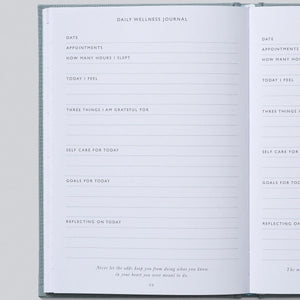 DAILY WELLNESS JOURNAL
DATE
APPOINTMENTS
HOW MANY HOURS I SLEPT
TODAY I FEEL
THREE THINGS I AM GRATEFUL FOR
SELF CARE FOR TODAY
GOALS FOR TODAY
REFLECTING ON TODAY
Never let the odds keep you from doing what you know
in your heart you were meant to do.
DATE
APPOINTM
HOW MANY
TODAY I FE
THREE THIN
SELF CARE
GOALS FO
REFLECTIN